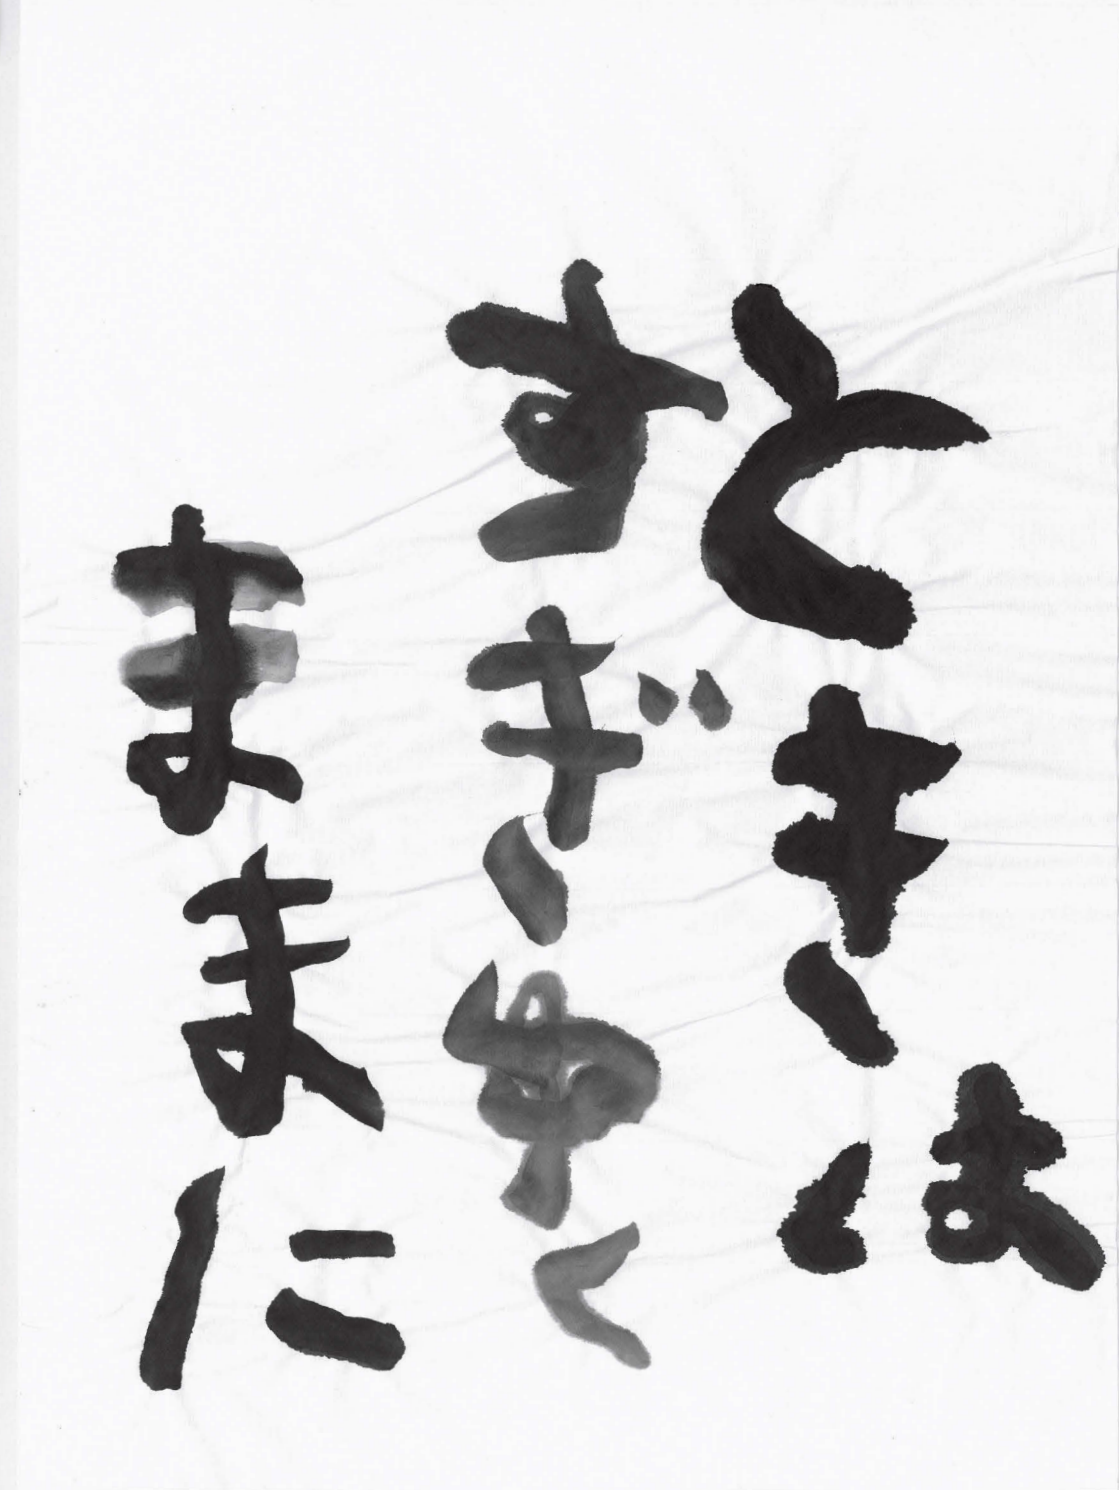 ときは
すぎゆく
ままに